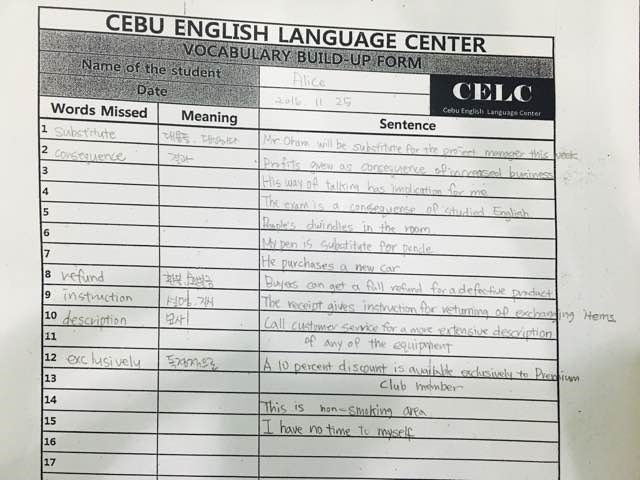 CEBU ENGLISH LANGUAGE CENTER
VOCABULARY BUILD-UP FORM
Name of the student Alice
Date 2016. 11. 25
CELC
Cebu English Language Center
Words Missed Meaning Sentence
1 Substitute Mr. Oham will be substitute for the project manager this week
2 consequence 결과 Profits grew as consequence of increased business
3 His way of talking has implication for me
4 The exam is a consequense of studied English
5 People's dwindles in the room
6 My pen is substitute for
7 He purchases a new car
8 refund Buyers can get a full refund for a defective product
9 instruction The receipt gives instruction for returning of exchanging items
10 description 묘사 Call customer service for a more extensive description
11 of any of the equipment
12 exclusively A 10 percent discount is available exclusively to Premium
13 Club member
14 This is non-smoking area
15 I have no time to myself
16
17